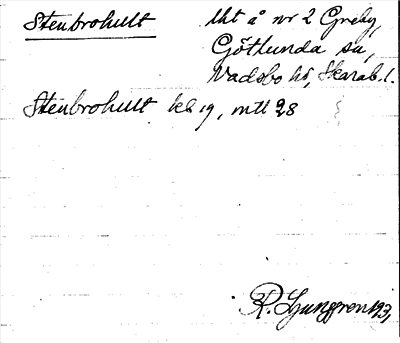 Stenbrohult lht å nr 2 Greby,
Götlunda sn,
Vadsbo hd, Skarab.l.
Stenbrohult kcb 19, mtl 98
R. Ljunggren 1931